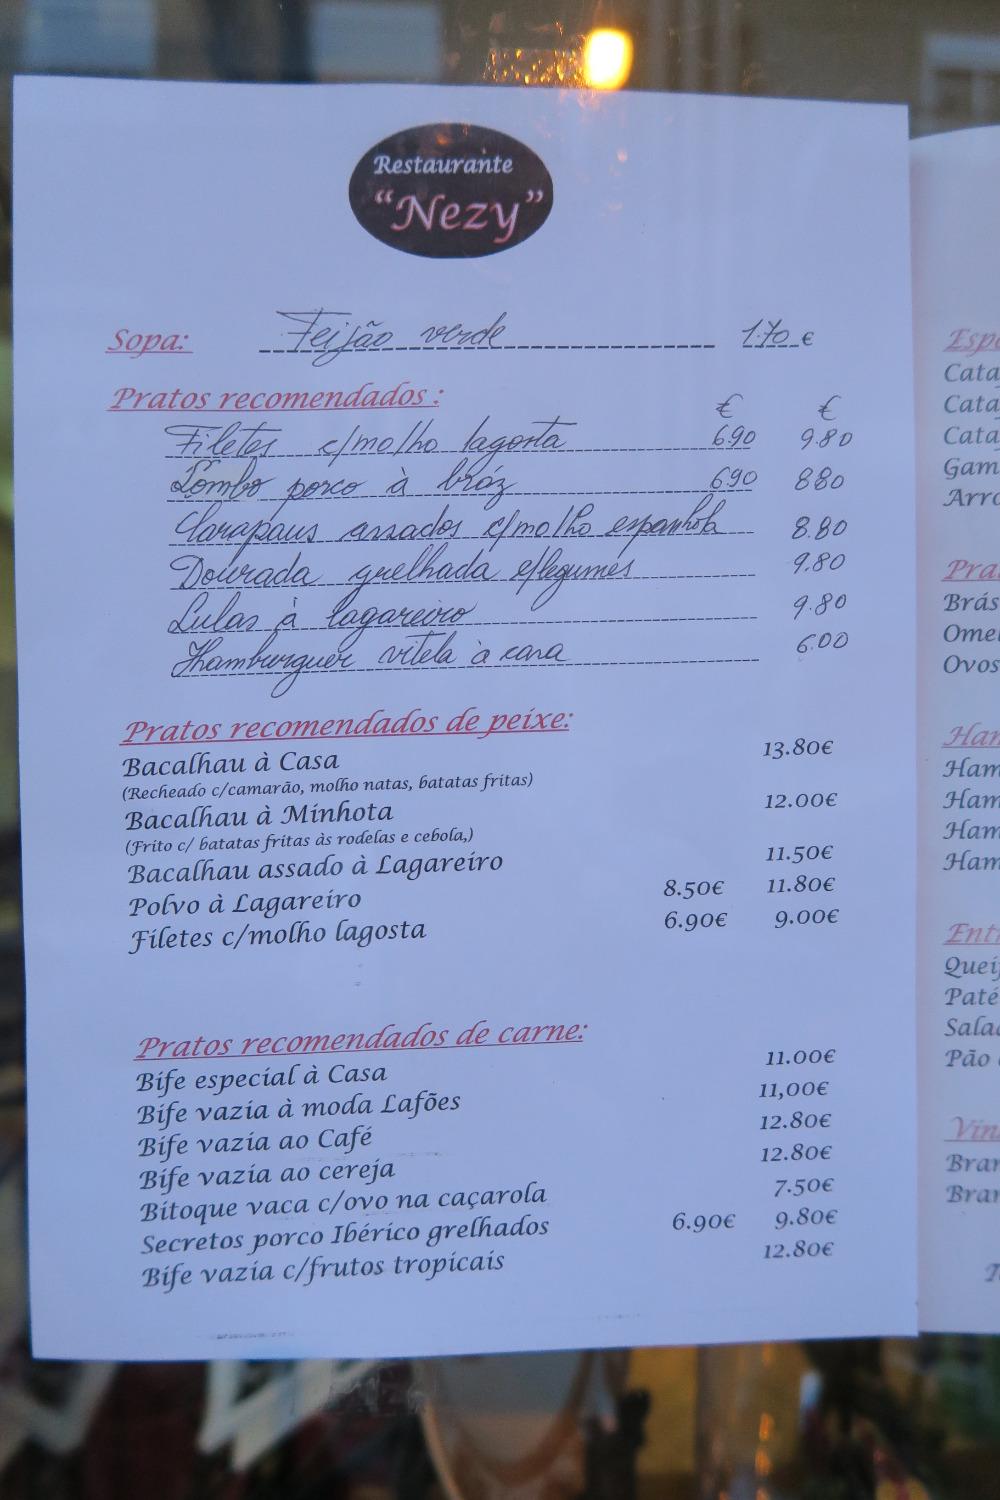 Restaurante
"Nezy"
Sopa: Feijão verde 1.70 €
Pratos recomendados :
€ €
Filetes c/molho lagosta 6.90 9.80
Lombo porco à bráz 6.90 8.80
Carapaus assados c/molho espanhola 8.80
Dourada grelhada c/legumes 9.80
Lulas à lagareiro 9.80
Hamburguer vitela à casa 6.00
Pratos recomendados de peixe:
Bacalhau à Casa 13.80€
(Recheado c/camarão, molho natas, batatas fritas)
Bacalhau à Minhota 12.00€
(Frito c/ batatas fritas às rodelas e cebola,)
Bacalhau assado à Lagareiro 11.50€
Polvo à Lagareiro 8.50€ 11.80€
Filetes c/molho lagosta 6.90€ 9.00€
Pratos recomendados de carne:
Bife especial à Casa 11.00€
Bife vazia à moda Lafões 11,00€
Bife vazia ao Café 12.80€
Bife vazia ao cereja 12.80€
Bitoque vaca c/ovo na caçarola 7.50€
Secretos porco Ibérico grelhados 6.90€ 9.80€
Bife vazia c/frutos tropicais 12.80€
Espe
Cata
Cata
Cata
Gam
Arro
Pra
Brás
Ome
Ovos
Han
Ham
Ham
Ham
Ham
Ent
Quei
Paté
Sala
Pão
Vin
Bran
Bran